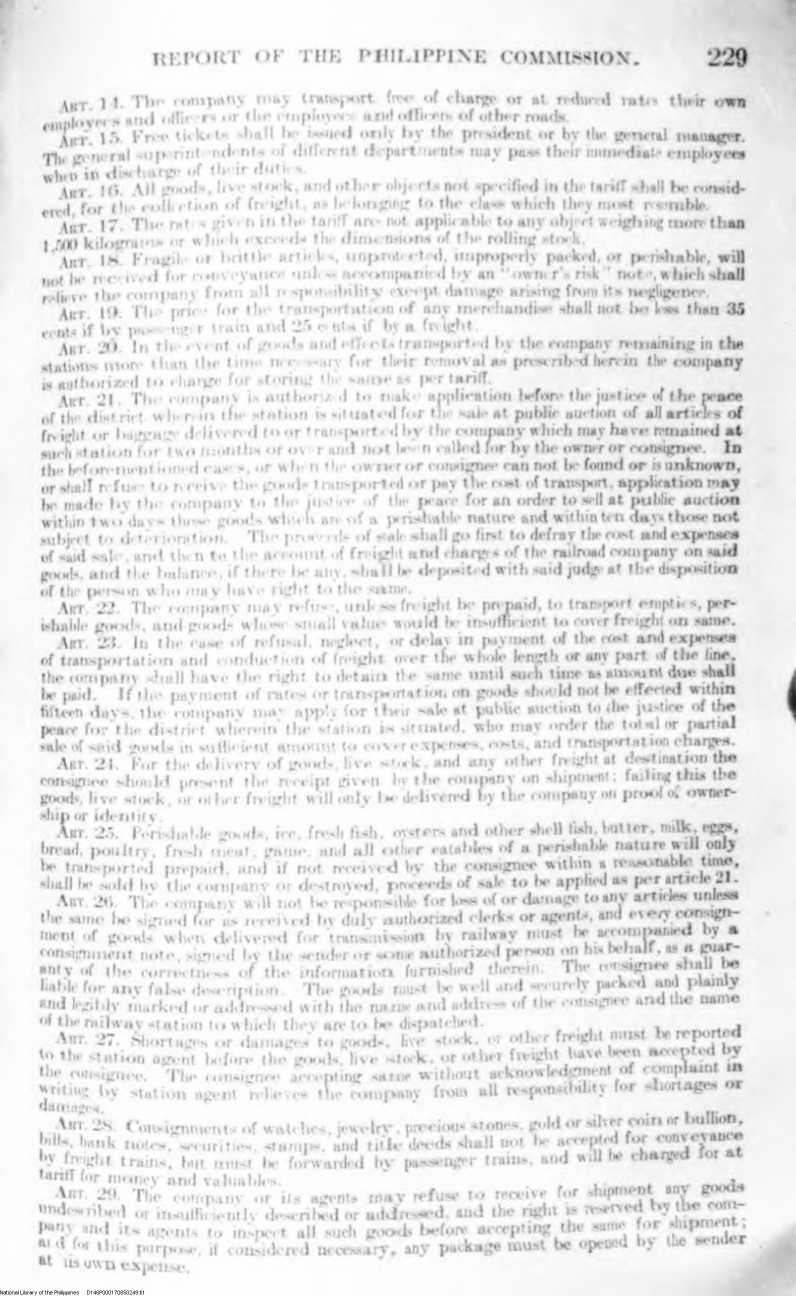 REPORT OF THE PHILIPPINE COMMISSION. 229
ART. 14. The company may transport free of charge or at reduced rates their own
employees and officers or the employees and officers of other roads.
ART. 15. Free tickets shall be issued only by the president or by the general manager.
The general superintendents of different departments may pass their immediate employees
when in discharge of their duties.
ART. 16. All goods, live stock, and other objects not specified in the tariff shall be consid-
ered, for the collection of freight, as belonging to the class which they most resemble.
ART. 17. The rates given in the tariff are not applicable to any object weighing more than
1,500 kilograms or which exceeds the dimensions of the rolling stock.
ART. 18. Fragile or brittle articles, unprotected, improperly packed, or perishable, will
not be received for conveyance unless accompanied by an "owner's risk" note, which shall
relieve the company from all responsibility except damage arising from its negligence.
ART. 19. The price for the transportation of any merchandise shall not be less than 35
cents if by passenger train and 25 cents if by a freight.
ART. 20. In the event of goods and effects transported by the company remaining in the
stations more than the time necessary for their removal as prescribed herein the company
is authorized to charge for storing the same as per tariff.
ART. 21. The company is authorized to make application before the justice of the peace
of the district wherein the station is situated for the sale at public auction of all articles of
freight or baggage delivered to or transported by the company which may have remained at
such station for two months or over and not been called for by the owner or consignee. In
the before-mentioned cases, or when the owner or consignee can not be found or is unknown,
or shall refuse to receive the goods transported or pay the cost of transport, application may
be made by the company to the justice of the peace for an order to sell at public auction
within two days those goods which are of a perishable nature and within ten days those not
subject to deterioration. The proceeds of sale shall go first to defray the cost and expenses
of said sale, and then to the account of freight and charges of the railroad company on said
goods, and the balance, if there be any, shall be deposited with said judge at the disposition
of the person who may have right to the same.
ART. 22. The company may refuse, unless freight be prepaid, to transport empties, per-
ishable goods, and goods whose small value would be insufficient to cover freight on same.
ART. 23. In the case of refusal, neglect, or delay in payment of the cost and expenses
of transportation and conduction of freight over the whole length or any part of the line,
the company shall have the right to detain the same until such time as amount due shall
be paid. If the payment of rates or transportation on goods should not be effected within
fifteen days, the company may apply for their sale at public auction to the justice of the
peace for the district wherein the station is situated, who may order the total or partial
sale of said goods in sufficient amount to cover expenses, costs, and transportation charges.
ART. 24. For the delivery of goods, live stock, and any other freight at destination the
consignee should present the receipt given by the company on shipment; failing this the
goods, live stock, or other freight will only be delivered by the company on proof of owner-
ship or identity.
ART. 25. Perishable goods, ice, fresh fish, oysters and other shell fish, butter, milk, eggs,
bread, poultry, fresh meat, game, and all other eatables of a perishable nature will only
be transported prepaid, and if not received by the consignee within a reasonable time,
shall be sold by the company or destroyed, proceeds of sale to be applied as per article 21.
ART. 26. The company will not be responsible for loss of or damage to any articles unless
the same be signed for as received by duly authorized clerks or agents, and every consign-
ment of goods when delivered for transmission by railway must be accompanied by a
consignment note, signed by the sender or some authorized person on his behalf, as a guar-
anty of the correctness of the information furnished therein. The consignee shall be
liable for any false description. The goods must be well and securely packed and plainly
and legibly marked or addressed with the name and address of the consignee and the name
of the railway station to which they are to be dispatched.
ART. 27. Shortages or damages to goods, live stock, or other freight must be reported
to the station agent before the goods, live stock, or other freight have been accepted by
the consignee. The consignee accepting same without acknowledgment of complaint in
writing by station agent relieves the company from all responsibility for shortages or
damages.
ART. 28. Consignments of watches, jewelry, precious stones, gold or silver coin or bullion,
bills, bank notes, securities, stamps, and title deeds shall not be accepted for conveyance
by freight trains, but must be forwarded by passenger trains, and will be charged for at
tariff for money and valuables.
ART. 29. The company or its agents may refuse to receive for shipment any goods
undescribed or insufficiently described or addressed, and the right is reserved by the com-
pany and its agents to inspect all such goods before accepting the same for shipment;
and for this purpose, if considered necessary, any package must be opened by the sender
at its own expense.
National Library of the Philippines